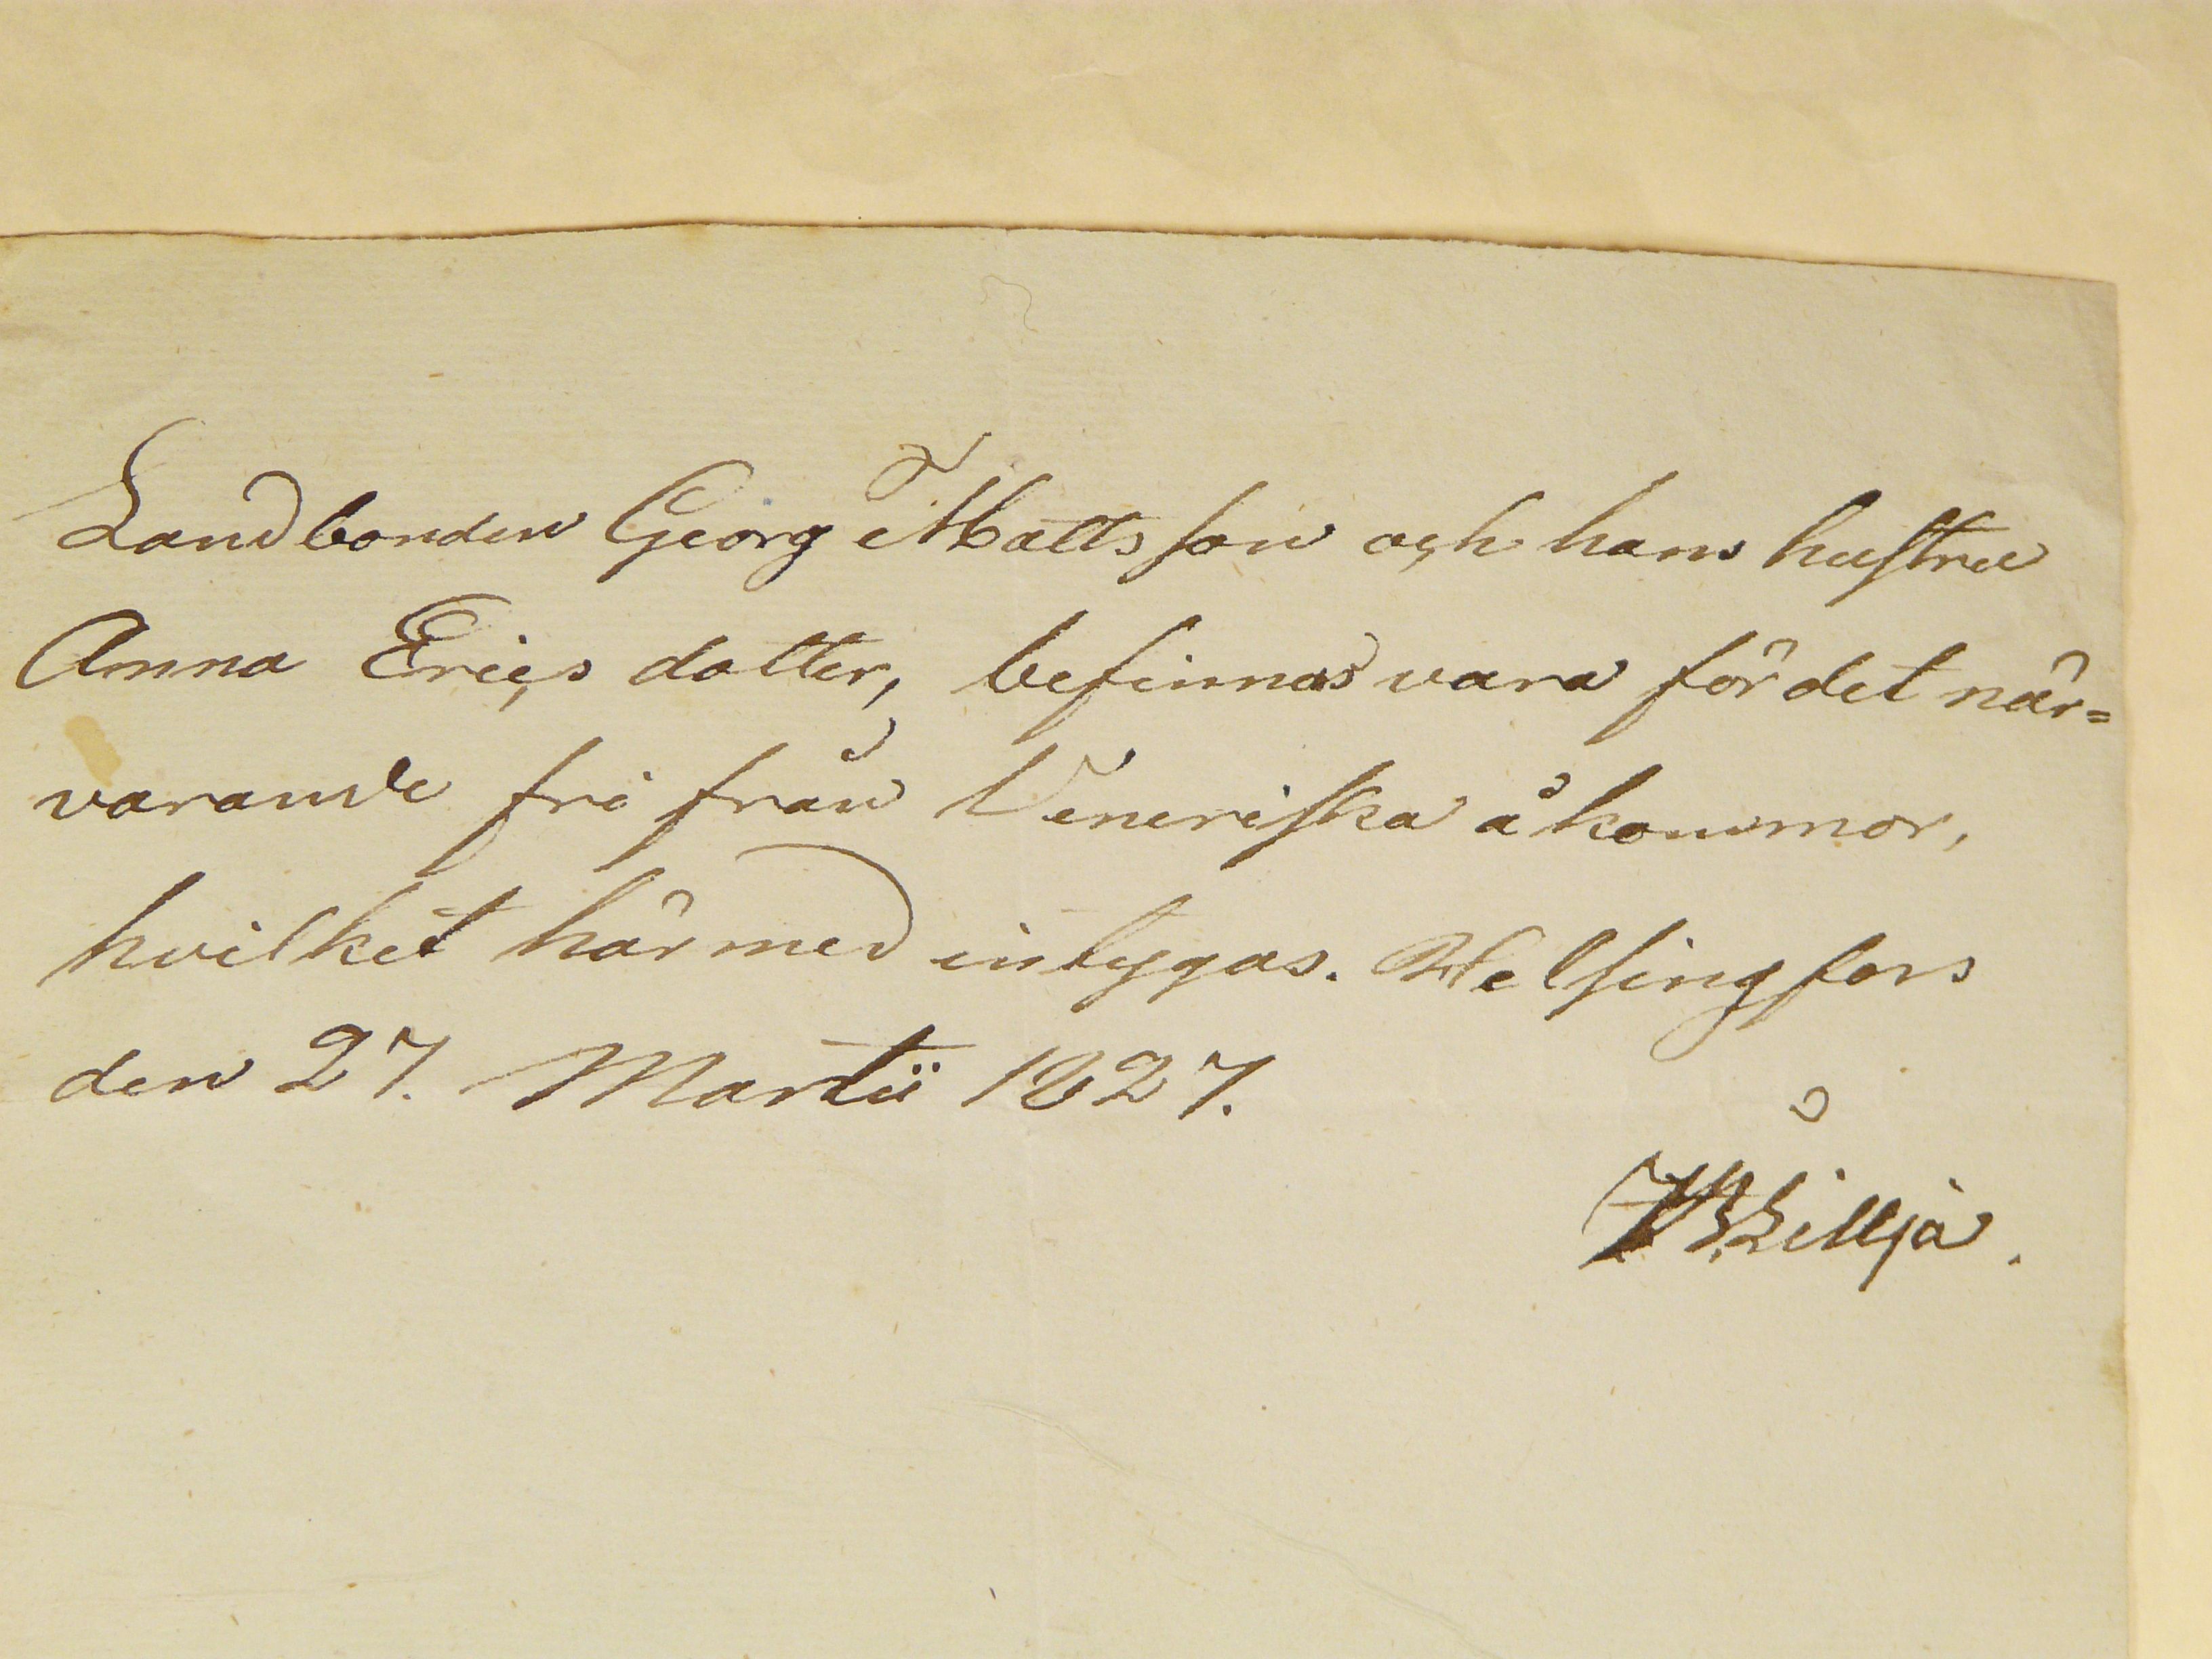 Landbonden Georg Mattsson och hans hustru
Anna Erics dotter, befinnas vara för det när=
varande fri från Veneriska åkommor,
hvilket härmed intygas. Helsingfors
den 27. Martii 1827.
Lilljå.